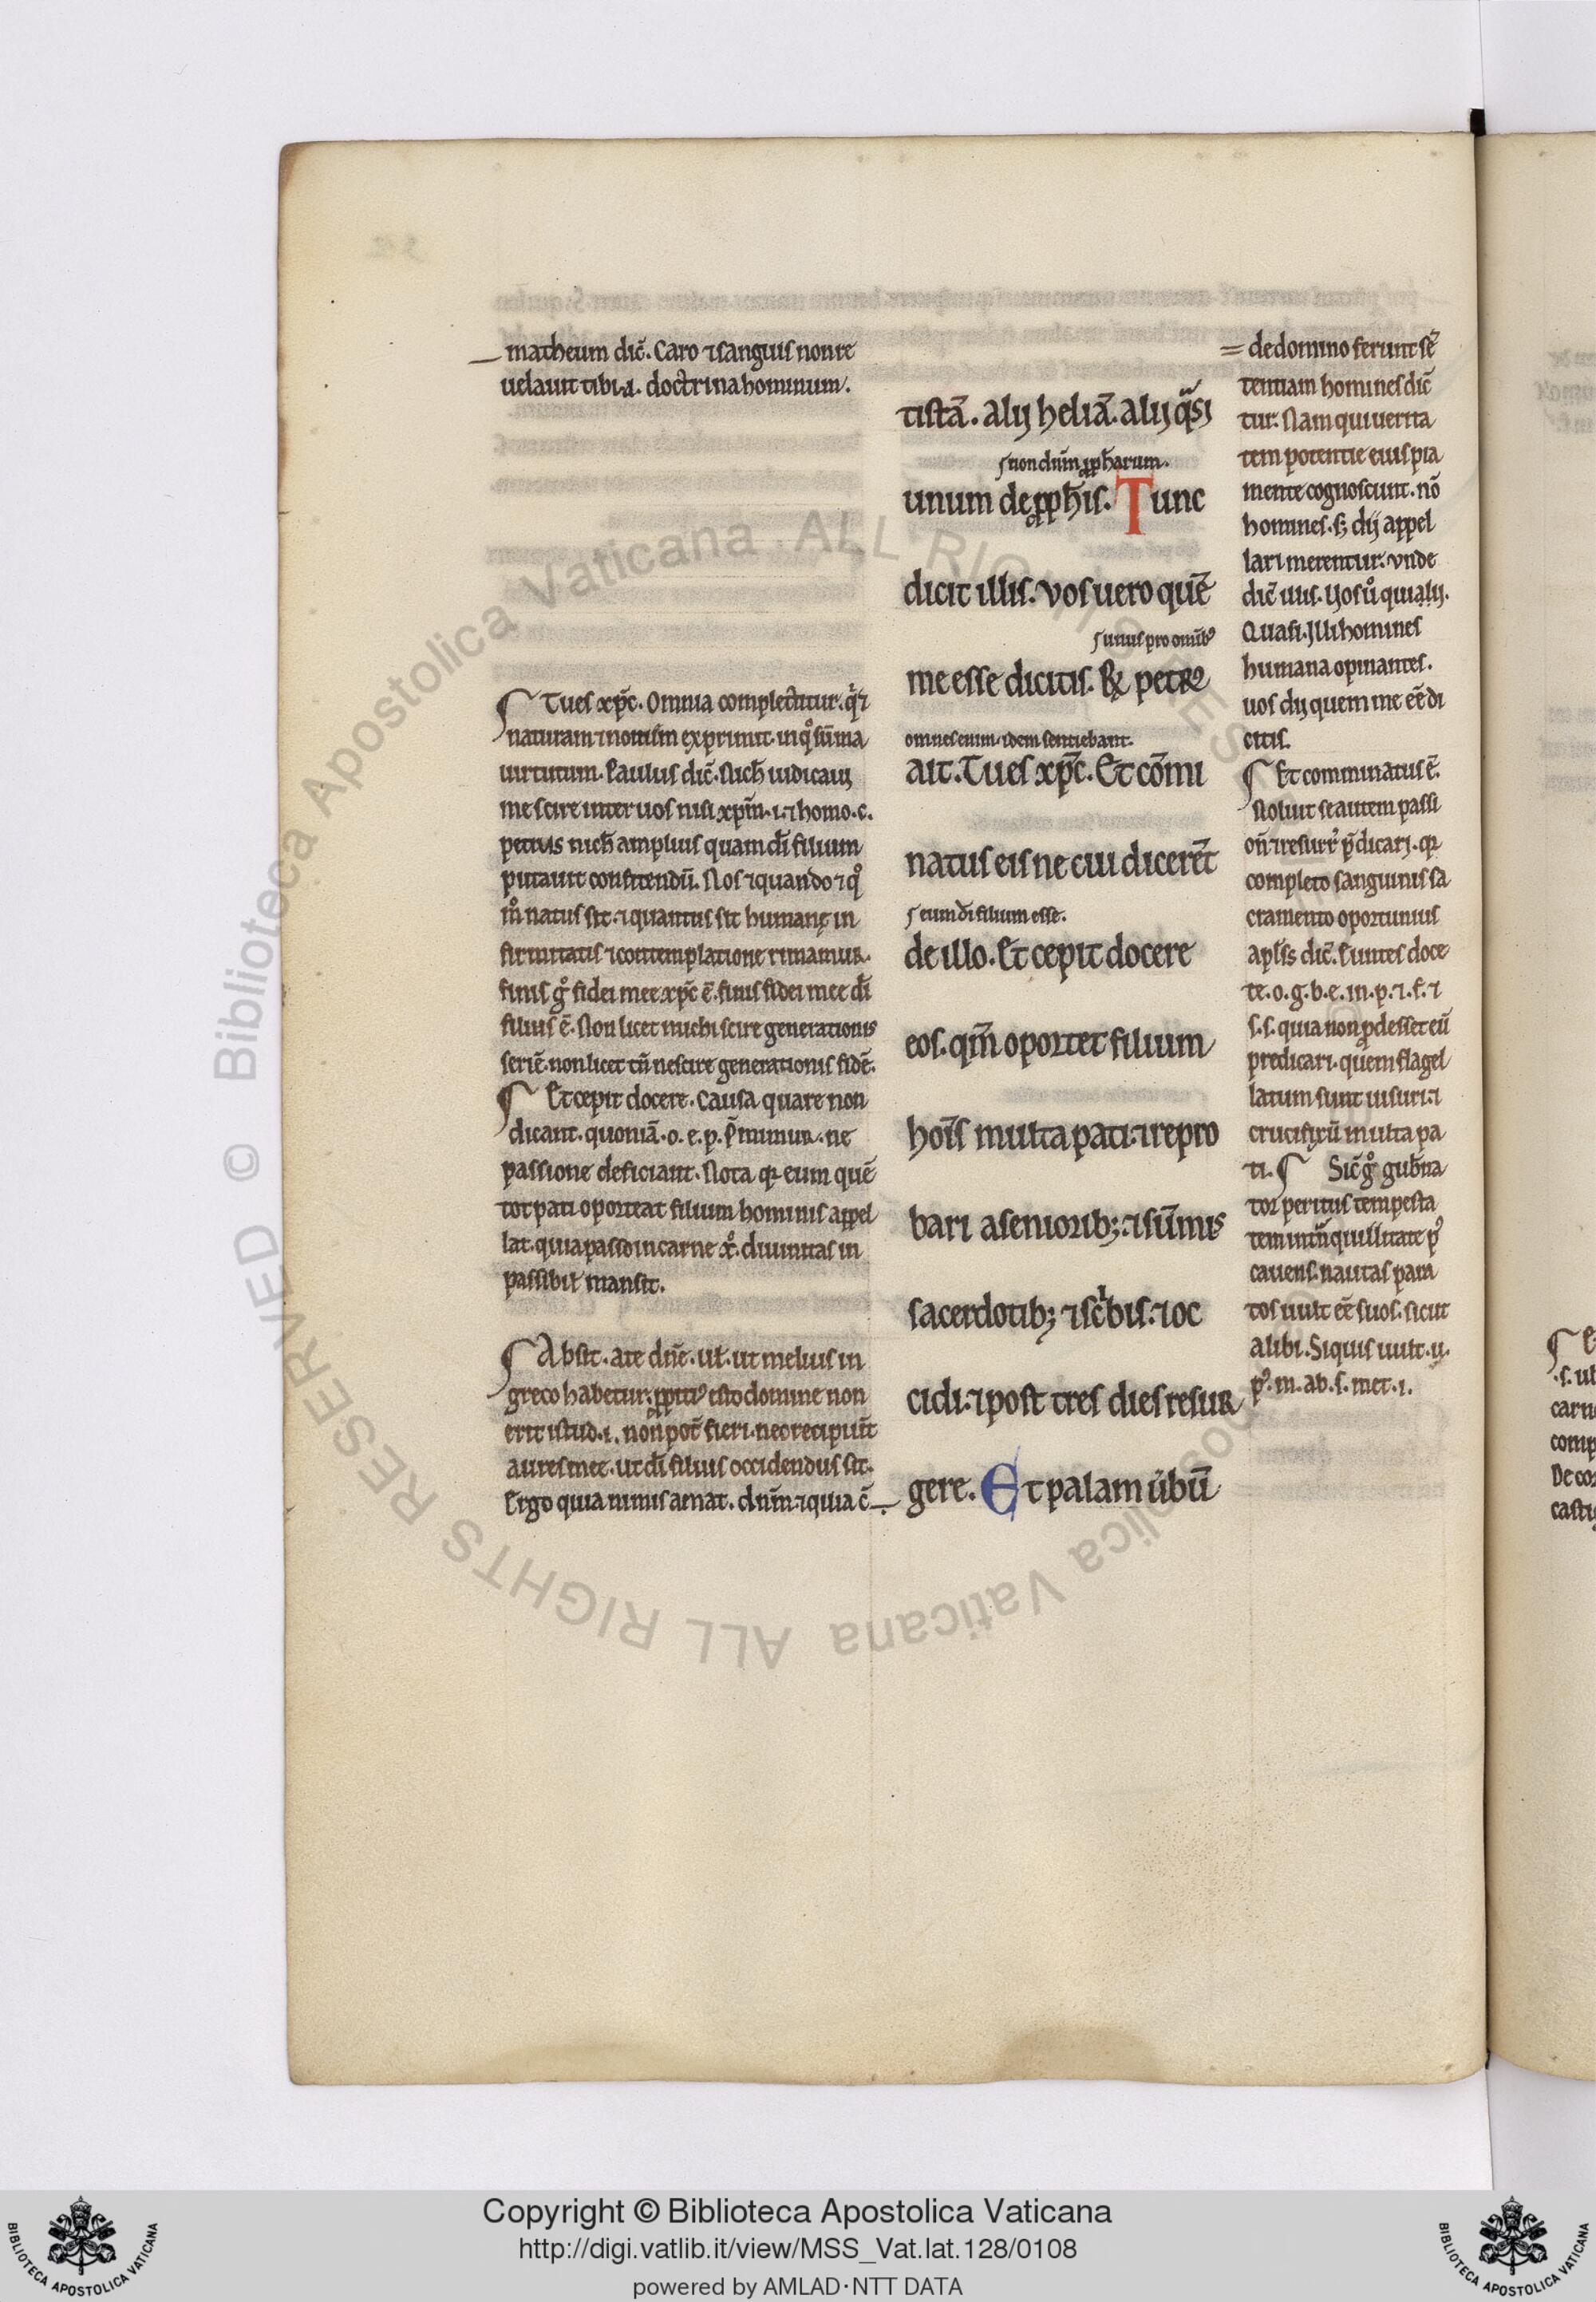 matheum dic̄. Caro ⁊ sanguis non re
uelauit tibi .i. doctrina hominum.
Tu es xp̄c. Omnia complectitur. q̇ ⁊
naturam ⁊ nomen exprimit. in qͦ sūma
uirtutum. Paulus dic̄. Nich̄ iudicaui
me scire inter uos nisi xp̄m. .i. ⁊ homo. c.
petrus nich̄ amplius quam dī filium
putauit confitendū. Nos ⁊ quando ⁊ qͦ
mͦ natus sit. ⁊ quantus sit humanę in
firmitatis ⁊ contemplatione rimamur.
finis gͦ fidei mee xp̄c ē. finis fidei mee dī
filius ē. Non licet michi scire generationis
seriē. non licet tn̄ nescire generationis fidē.
Et cepit docere. Causa quare non
dicant. quoniā. o. e. p. p̄minur. ne
passione deficiant. Nota qr eum quē
tot pati oporteat filium hominis appel
lat. quia passo in carne xͦ. diuinitas in
passibił mansit.
Absit. a te dn̄e. uł. ut melius in
greco habetur. ꝓpitiꝰ esto domine non
erit istud .i. non pot̄ fieri. nec recipiūt
aures mee. ut dī filius occidendus sit.
Ergo quia nimis amat. dn̄m ⁊ quia c̄
tistā. alij heliā. alij qͣsi
non dn̄m ꝓph̄arum.
unum de ꝓph̄is. Tunc
dicit illis. vos uero quē
unus pro omībꝰ
me esse dicitis. R̄ petrꝰ
omnes enim idem sentiebant.
ait. Tu es xp̄c. Et cōmi
natus eis ne cui dicerēt
eum dī filium esse.
de illo. Et cepit docere
eos. qm̄ oportet filium
hoīs multa pati. ⁊ repro
bari a seniorib; ⁊ sūmis
sacerdotib; ⁊ sc̄bis. ⁊ oc
cidi. ⁊ post tres dies resur
gere. Et palam ūbū
de domino ferunt sē
tentiam homines dic̄
tur. Nam qui uerita
tem potentie eius pia
mente cognoscunt. nō
homines. s; dij appel
lari merentur. vnde
dic̄ uus. Uos uͦ quia ły.
Quasi. Illi homines
humana opinantes.
uos dij quem me eē di
citis.
Et comminatus ē.
Noluit se autem passi
on̄ ⁊ resurr̄ p̄dicari. qr
completo sanguinis sa
cramento oportunius
apłis dic̄. Euntes doce
te. o. g. b. e. in. p. ⁊. f. ⁊
s. s. quia non ꝓdesset eū
predicari. quem flagel
latum sunt uisuri. ⁊
crucifixū multa pa
ti. Sic̄ gͦ gub̄na
tor peritus tempesta
tem in tn̄quillitate p̄
cauens. nautas para
tos uult eē suos. sicut
alibi. Siquis uult. u.
pꝰ. m. ab. s. met. i.
Copyright © Biblioteca Apostolica Vaticana
http://digi.vatlib.it/view/MSS_Vat.lat.128/0108
powered by AMLAD·NTT DATA